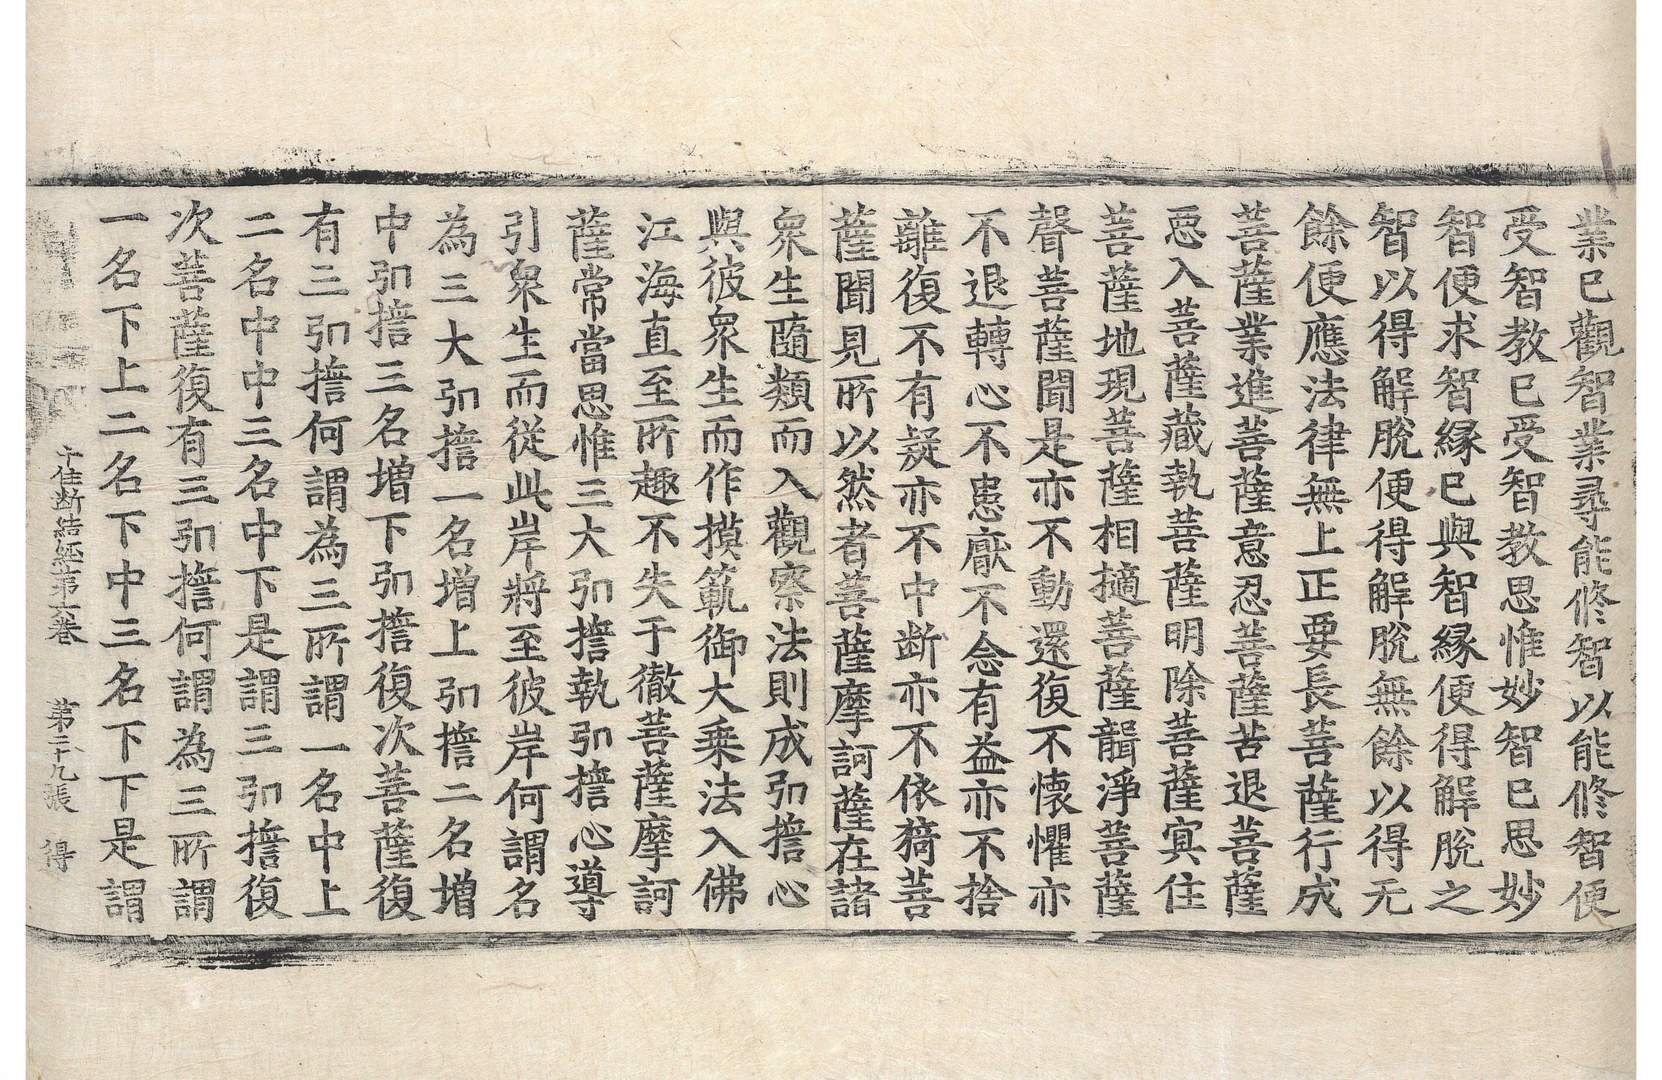 業已觀智業尋能修智以能修智便
受智教已受智教思惟妙智已思妙
智便求智緣已與智緣便得解脫之
智以得解脫便得解脫無餘以得无
餘便應法律無上正要長菩薩行成
菩薩業進菩薩意忍菩薩苦退菩薩
惡入菩薩藏執菩薩明除菩薩冥住
菩薩地現菩薩相擿菩薩聾淨菩薩
聲菩薩聞是亦不動還復不懷懼亦
不退轉心不恚厭不念有益亦不捨
離復不有疑亦不中斷亦不依猗菩
薩聞見所以然者菩薩摩訶薩在諸
衆生隨類而入觀察法則成弘擔心
與彼衆生而作摸範御大乘法入佛
江海直至所趣不失于徹菩薩摩訶
薩常當思惟三大弘擔執弘擔心導
引衆生而從此岸將至彼岸何謂名
為三大弘擔一名增上弘擔二名增
中弘擔三名增下弘擔復次菩薩復
有三弘擔何謂為三所謂一名中上
二名中中三名中下是謂三弘擔復
次菩薩復有三弘擔何謂為三所謂
一名下上二名下中三名下下是謂
十住斷結經第六卷 第二十九張 得